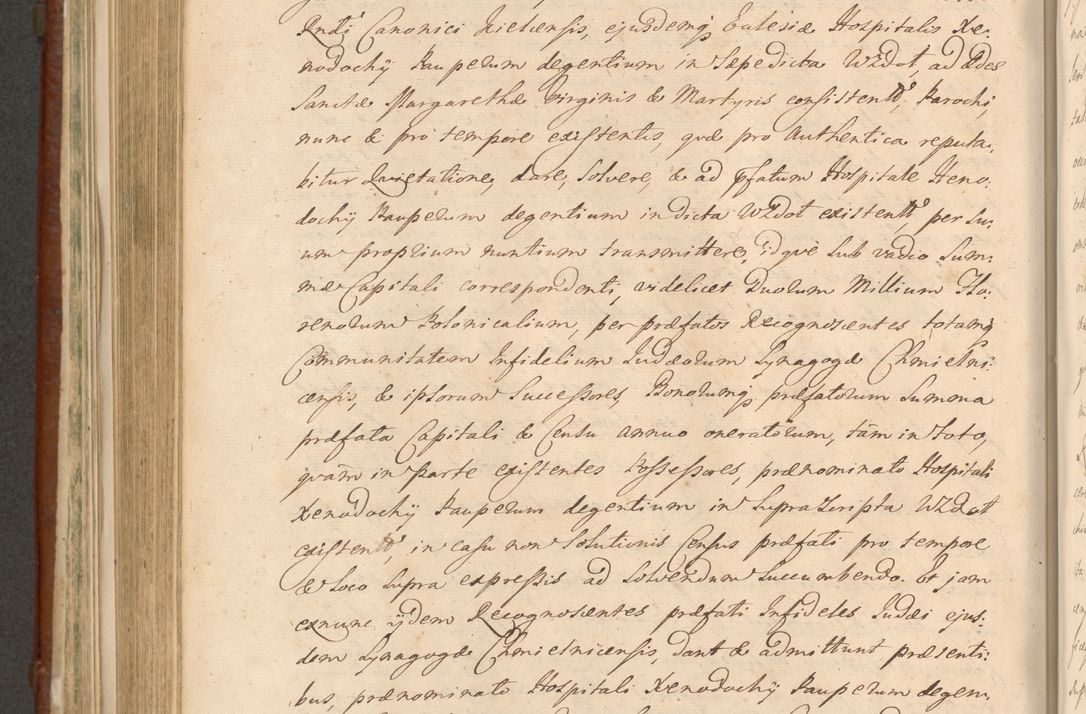 Rndi Canonici Kielcensis, ejusdemq Ecclesiæ Hospitalis Xe:
nodochÿ Pauperum degentium in Sæpedicta Wzdot, ad Ædes
Sanctæ Margarethæ Virginis & Martyris consistentis, Parochi,
nunc & pro tempore existentis, quæ pro Authentica reputa:
bitur Quietatione, dare, solvere, & ad pfatum Hospitale Xeno:
dochÿ Pauperum degentium in dicta Wzdot existens, per su:
um proprium nuntium transmittere, idqvè sub vadio Sum:
mæ Capitali correspondenti, videlicet Duorum Millium Flo:
renorum Polonicalium, per præfatos Recognoscentes totamq
Communitatem Infidelium Judæorum Synagogæ Chmielni:
censis, & ipsorum Successores, Bonorumq præfatorum Summa
præfata Capitali & Censu annuo oneratorum, tàm in Toto,
qvàm in Parte existentes Possessores, prænominato Hospitali
Xenodochÿ Pauperum degentium in suprascripta Wzdot
existenti, in casu non Solutionis Census præfati pro tempore
& loco supra expressis ad solvendum succumbendo. Et jam
exnunc ÿdem Recognoscentes præfati Infideles Judæi ejus:
dem Synagogæ Chmielnicensis, dant & admittunt præsenti:
bus, prænominato Hospitali Xenodochÿ Pauperum degen: